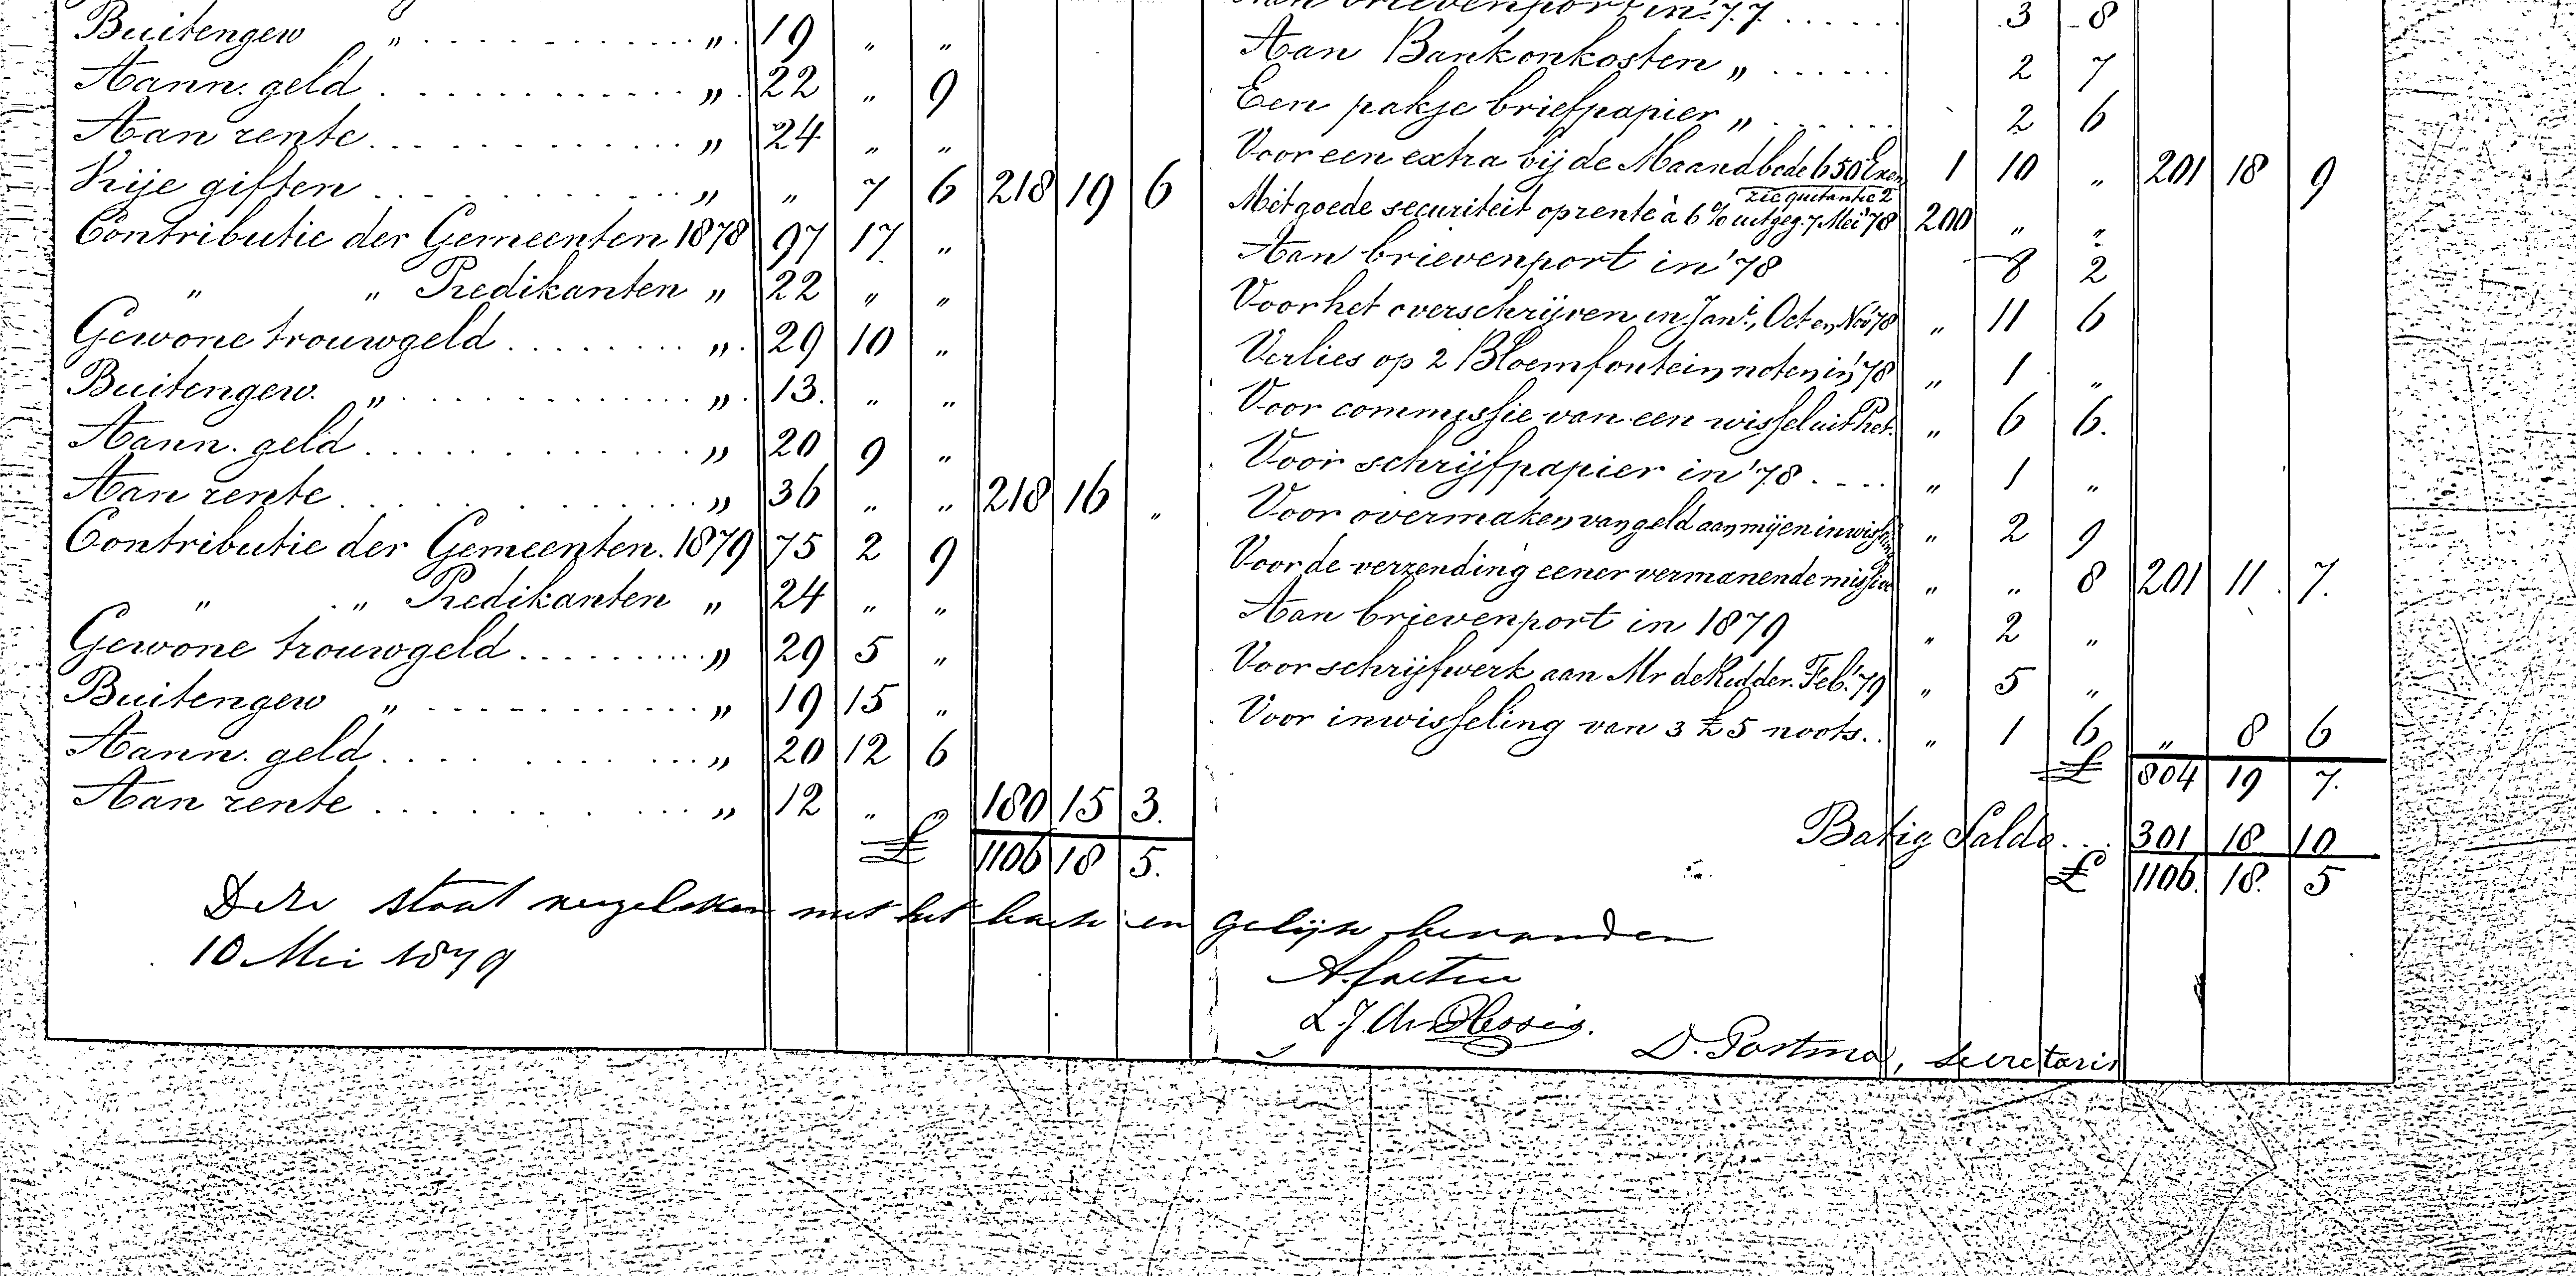 Buitengew „ . . . . „ 19 „ „
Aann. geld . . . . „ 22 „ 9
Aan rente . . . . „ 24 „ „
Vrije giften . . . . „ „ 7 6 218 19 6
Contributie der Gemeenten 1878 97 17 „
„ „ Predikanten „ 22 „ „
Gewone trouwgeld . . . . „ 29 10 „
Buitengew. „ . . . . „ 13. „ „
Aann. geld . . . . „ 20 9 „
Aan rente . . . . „ 36 „ „ 218 16 „
Contributie der Gemeenten. 1879 75 2 9
„ „ Predikanten „ 24 „ „
Gewone trouwgeld . . . . „ 29 5 „
Buitengew „ . . . . „ 19 15 „
Aann. geld . . . . „ 20 12 6
Aan rente . . . . „ 12 „ „ 180 15 3.
£ 1106 18 5.
Aan brievenport in '77 . . . . 3 8
Aan Bankonkosten „ . . . . 2 7
Een pakje briefpapier „ . . . . 2 6
Voor een extra bij de Maandbode 650 Exen 1 10 „ 201 18 9
zie quitantie 2
Met goede securiteit op rente à 6% uitgeg. 7 Mei '78 200 „ „
Aan brievenport in '78 8 2
Voor het overschrijven in Jan., Oct en Nov '78 „ 11 6
Verlies op 2 Bloemfontein noten in '78 „ 1 „
Voor commissie van een wissel uit Pet. „ 6 6.
Voor schrijfpapier in '78 . . . . „ 1 „
Voor overmaken van geld aan mij en inwisseling „ 2 9
Voor de verzending eener vermanende missive „ „ 8 201 11 7.
Aan brievenport in 1879 „ 2 „
Voor schrijfwerk aan Mr de Ridder. Feb. '79 „ 5 „
Voor inwisseling van 3 £5 noots. . „ 1 6 „ 8 6
£ 804 19 7.
Batig Saldo . . . 301 18 10
£ 1106. 18. 5
Deze staat vergeleken met het boek en gelijk bevonden
10 Mei 1879
L. J. du Plessis.
D. Postma, secretaris